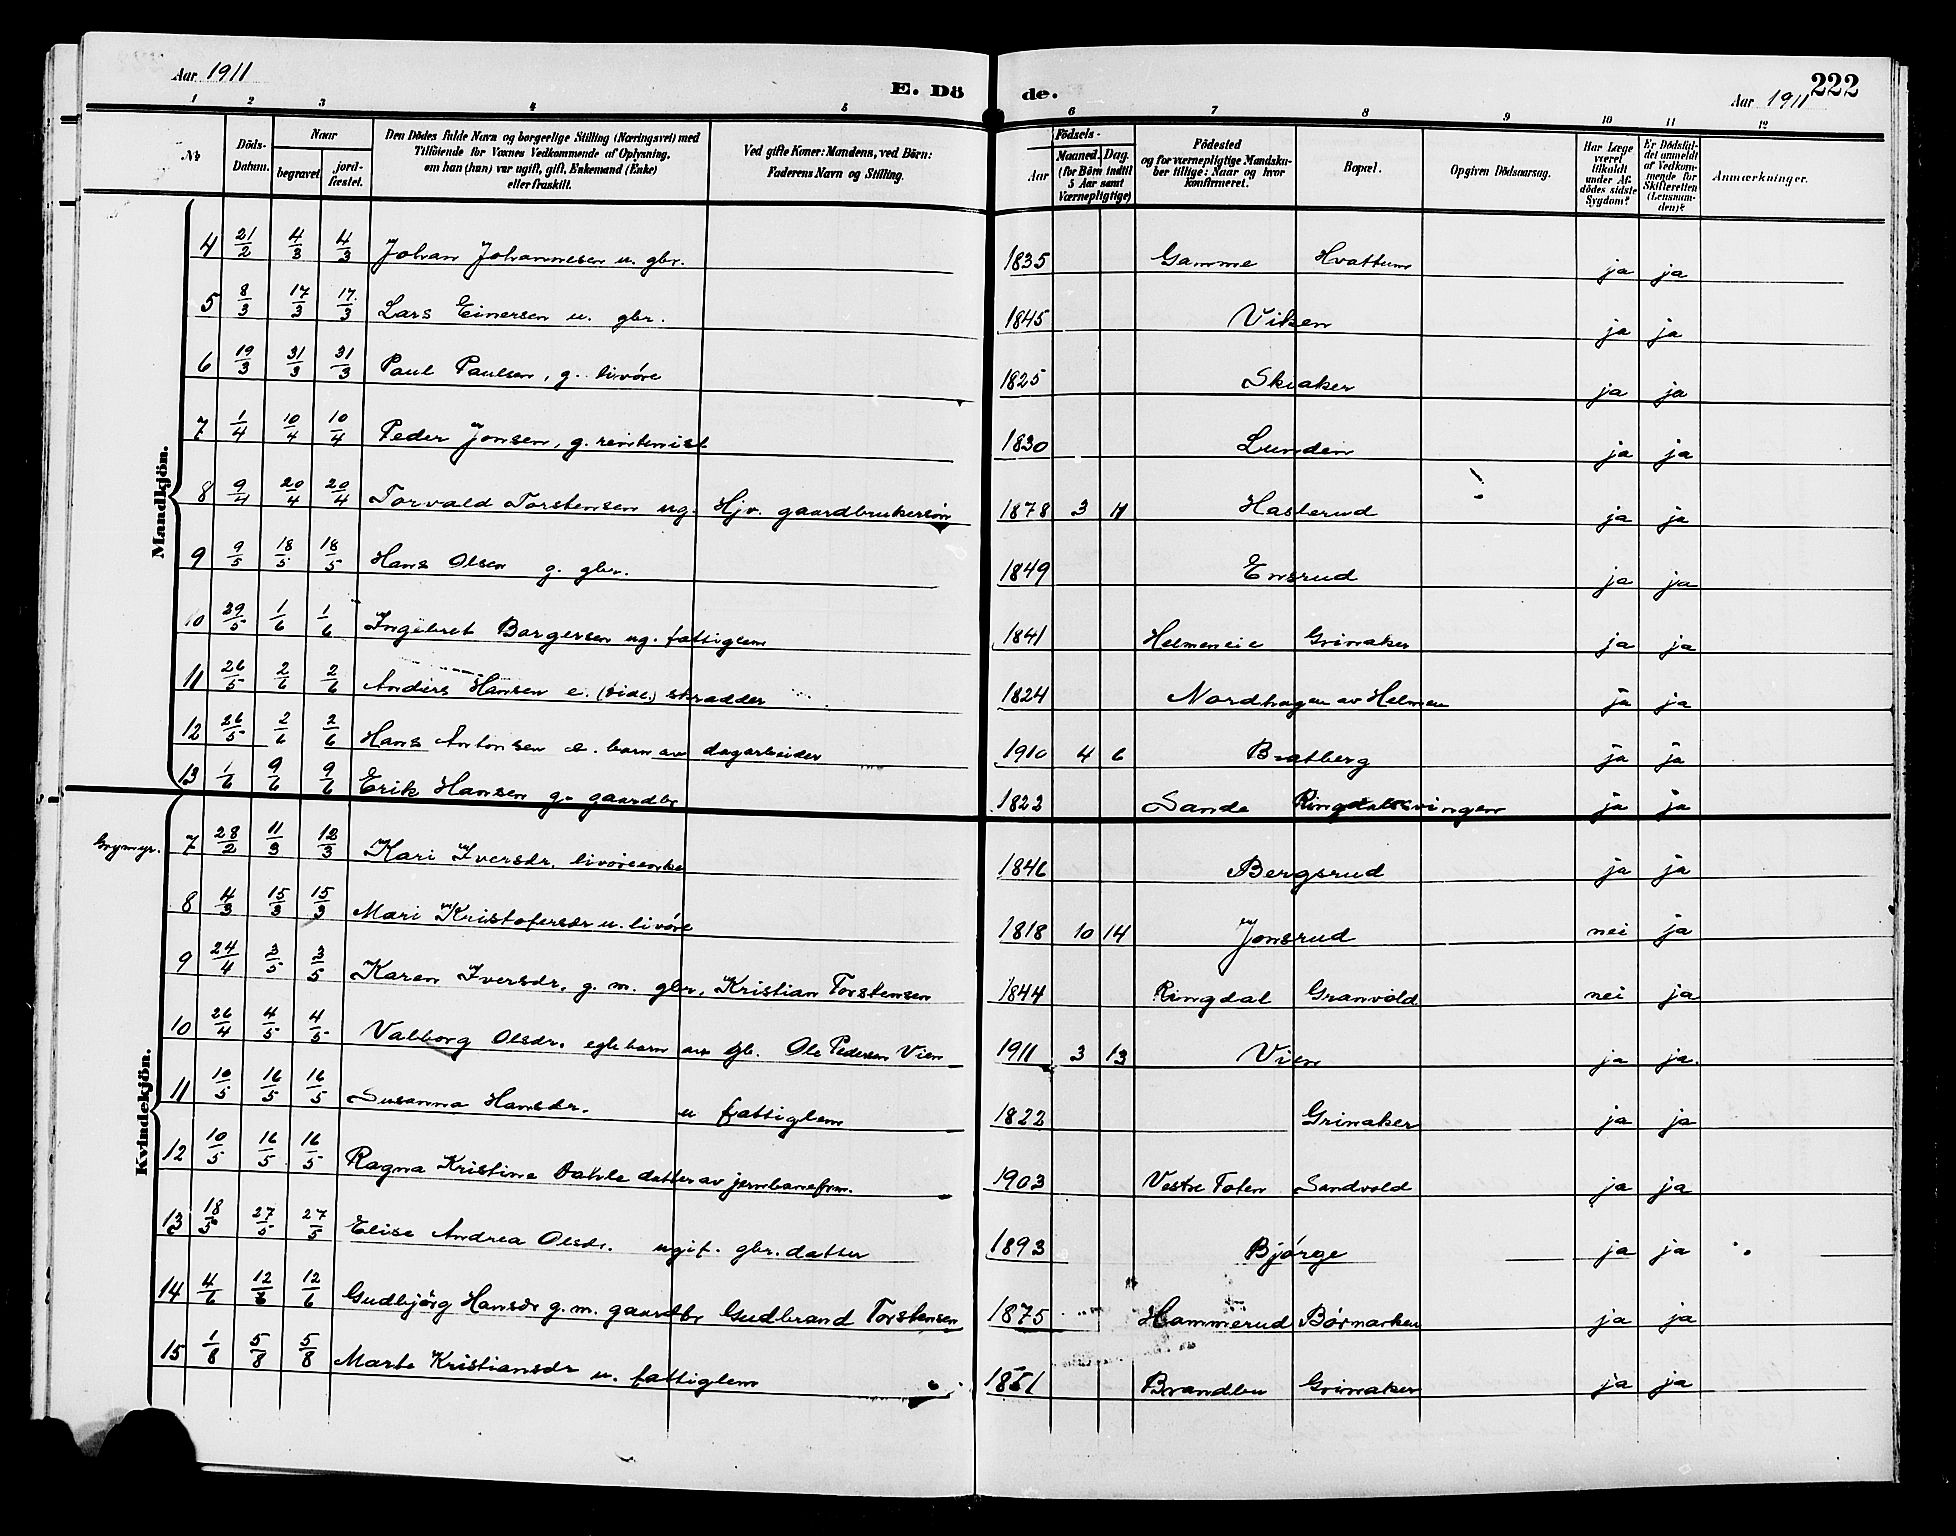 Aar 1911 E. Dö de. Aar 1911 222
1 2 3 4 5 6 7 8 9 10 11 12
No
Döds-Datum.
Naar
begravet. jord-fæstet.
Den Dödes fulde Navn og borgerlige Stilling (Næringsvei) med
Tilföiende for Voxnes Vedkommende af Oplysning,
om han (hun) var ugift, gift, Enkemand (Enke)
eller fraskilt.
Ved gifte Koner: Mandens, ved Börn:
Faderens Navn og Stilling.
Aar
Födsels-
Maaned. Dag.
(for Börn indtil
5 Aar samt
Værnepligtige)
Födested
og for værnepligtige Mandsku-
ber tillige: Naar og hvor
konfirmeret.
Bopæl.
Opgiven Dödsaarsag.
Har Læge
været
tilkaldt
under Af-
dödes sidste
Sygdom?
Er Dödsfal-
det anmeldt
af Vedkom-
mende for
Skifteretten
(Lensman-
den)?
Anmærkninger.
Mandkjön.
4 21/2 4/3 4/3 Johan Johannesen u. gbr. 1835 Gamme Hvattum ja ja
5 8/3 17/3 17/3 Lars Einersen u. gbr. 1845 Viken ja ja
6 19/3 31/3 31/3 Paul Paulsen, g. livöre 1825 Skiaker ja ja
7 1/4 10/4 10/4 Peder Jonsen, g. rentenist 1830 Lunden ja ja
8 9/4 20/4 20/4 Torvald Torstensen ug. Hjv. gaardbrukersön 1878 3 11 Hasterud ja ja
9 9/5 18/5 18/5 Hans Olsen g. gbr. 1849 Ensrud ja ja
10 29/5 1/6 1/6 Ingebret Borgersen ug. fattiglem 1841 Helmeneie Grinaker ja ja
11 26/5 2/6 2/6 Anders Hansen e. skrædder 1824 Nordhagen av Helmen ja ja
12 26/5 2/6 2/6 Hans Antonsen e. barn av dagarbeider 1910 4 6 Bratberg ja ja
13 1/6 9/6 9/6 Erik Hansen g. gaardbr 1823 Sande Ringdalssvingen ja ja
Kvindekjön.
Grymyr. 7 28/2 11/3 12/3 Kari Iversdr. livöreenke 1846 Bergsrud ja ja
8 4/3 15/3 15/3 Mari Kristofersdr u. livöre 1818 10 14 Jonsrud nei ja
9 24/4 3/5 3/5 Karen Iversdr. g. m. gbr. Kristian Torstensen 1844 Ringdal Granvold nei ja
10 26/4 4/5 4/5 Valborg Olsdr. egte barn av gb. Ole Pedersen Vien 1911 3 13 Vien ja ja.
11 10/5 16/5 16/5 Susanna Hansdr. u fattiglem 1822 Grinaker ja ja
12 10/5 16/5 16/5 Ragna Kristine Dahle datter av jernbaneform. 1903 Vestre Toten Sandvold ja ja
13 18/5 27/5 27/5 Elise Andrea Olsdr. ugif. gbr. datter 1893 Bjørge ja ja
14 4/6 12/6 12/6 Gudbjörg Hansdr g. m. gaardbr Gudbrand Torstensen 1875 Hammerud Børmarken ja ja
15 1/8 5/8 5/8 Marte Kristiansdr u. fattiglem 1851 Brandbu Grinaker ja ja